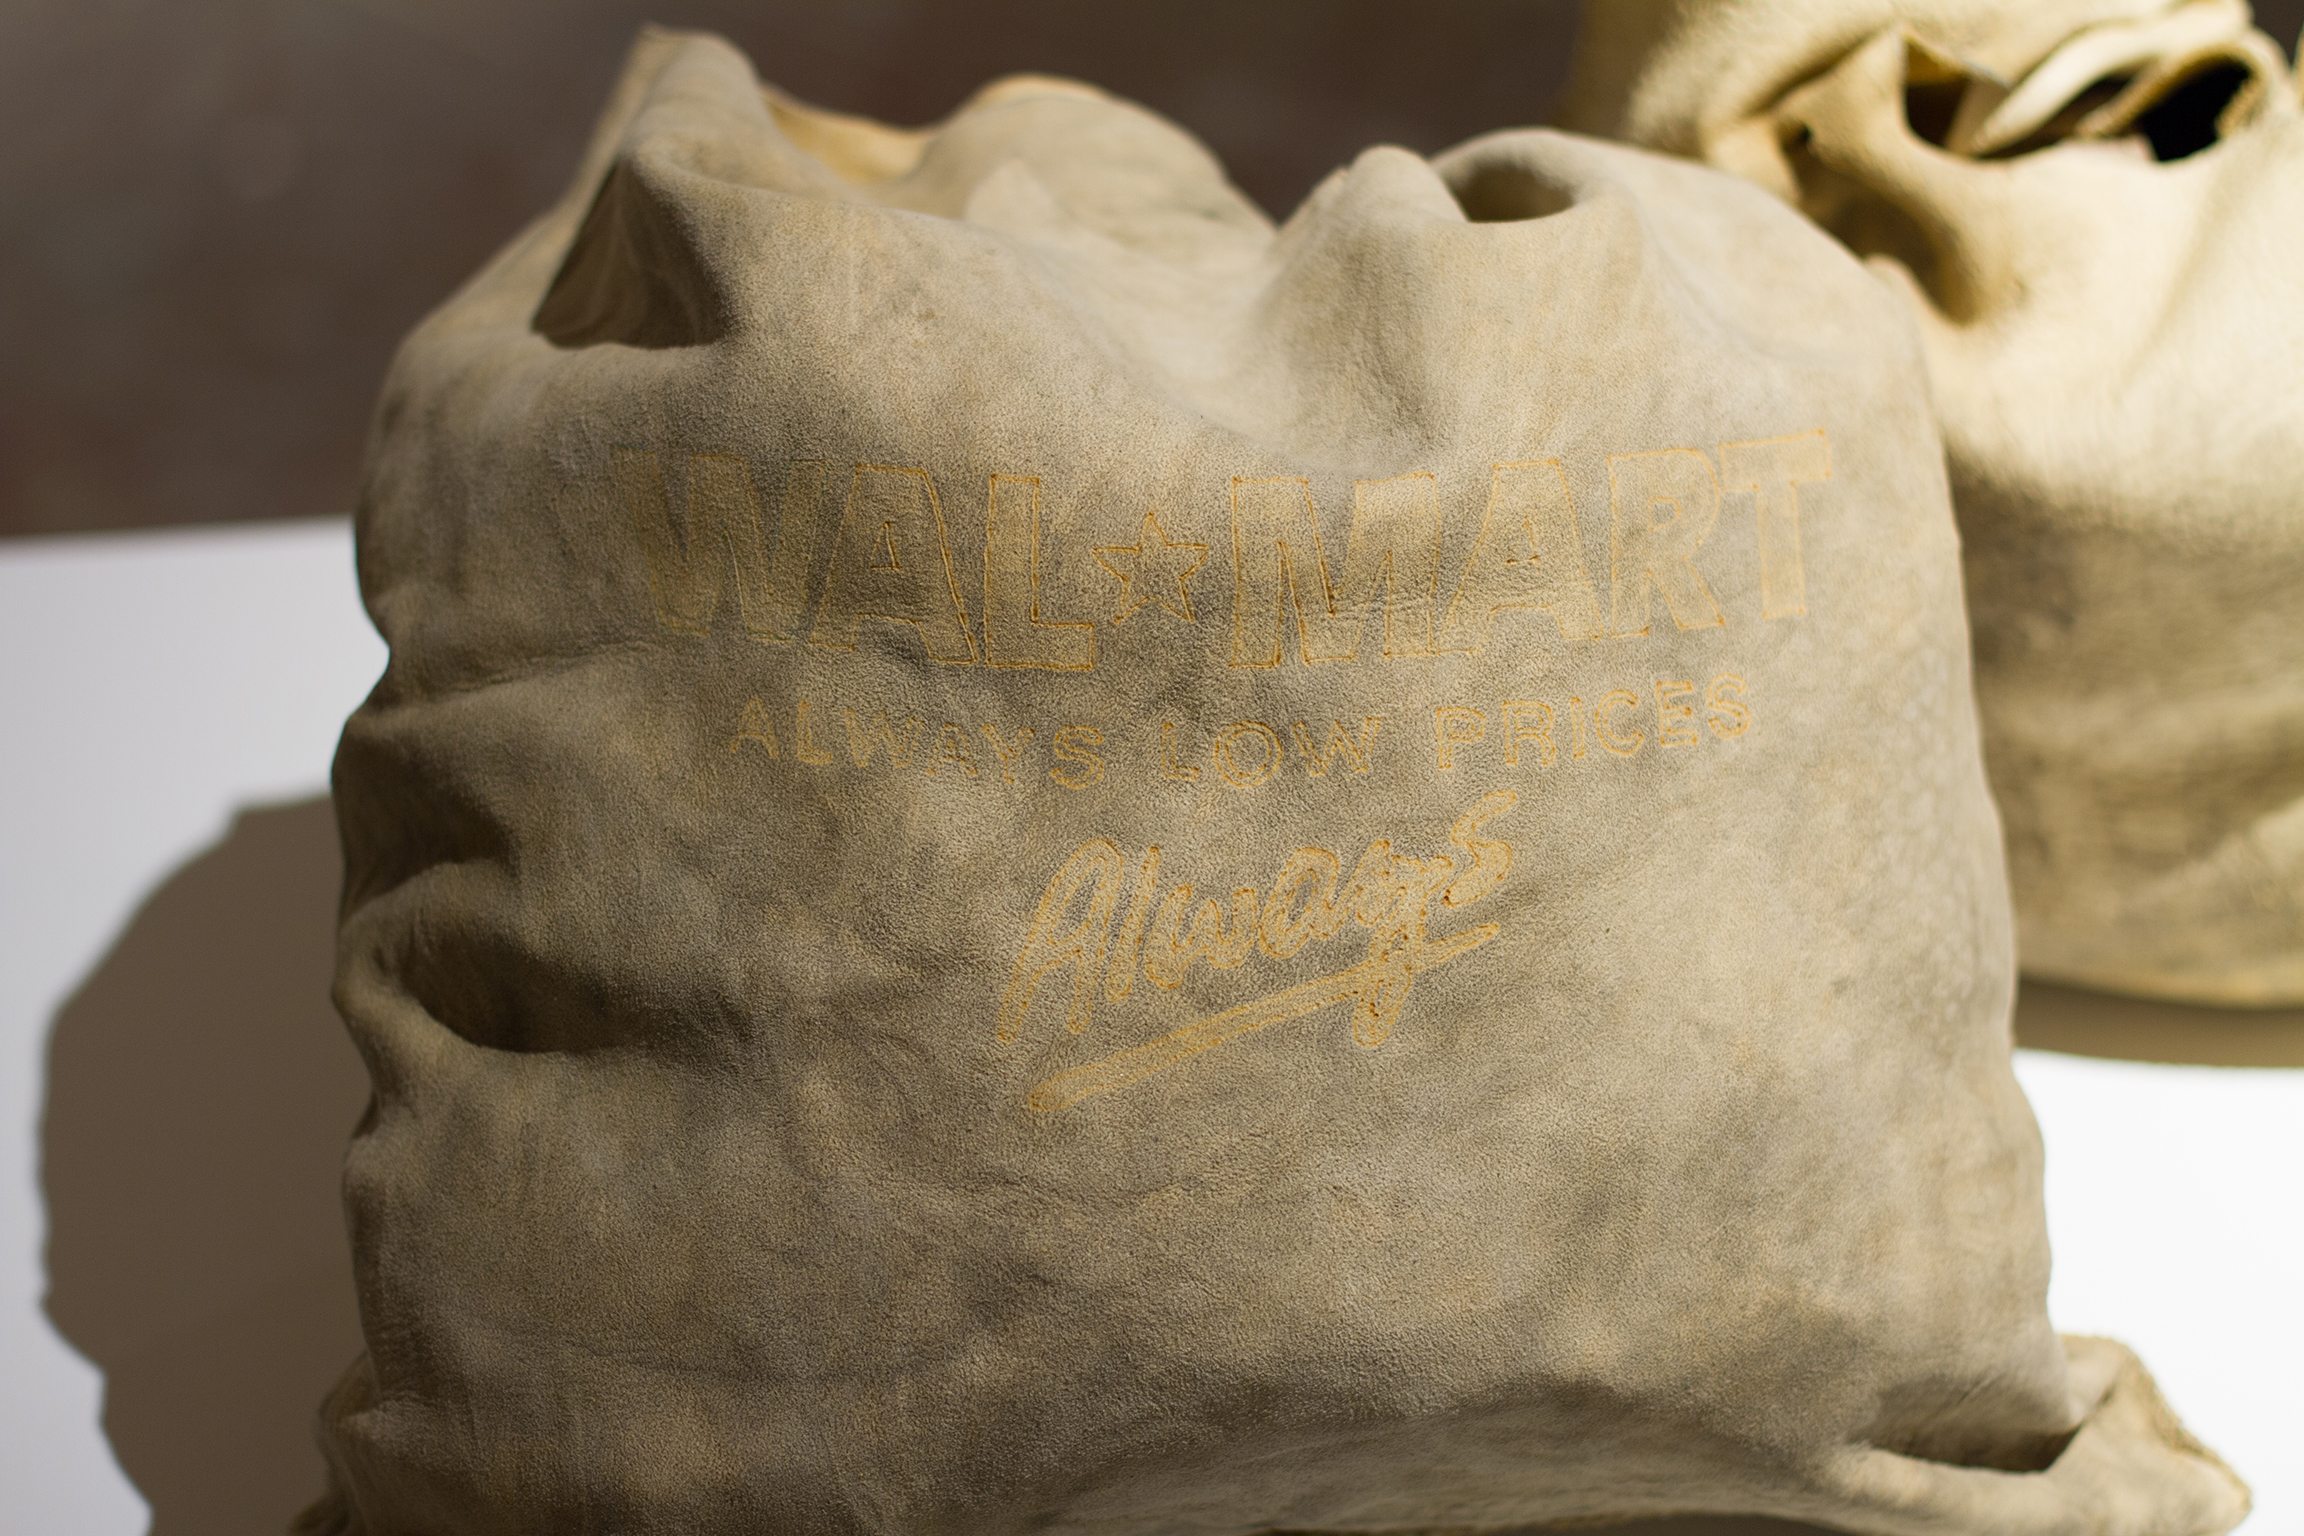 WAL★MART
ALWAYS LOW PRICES
Always